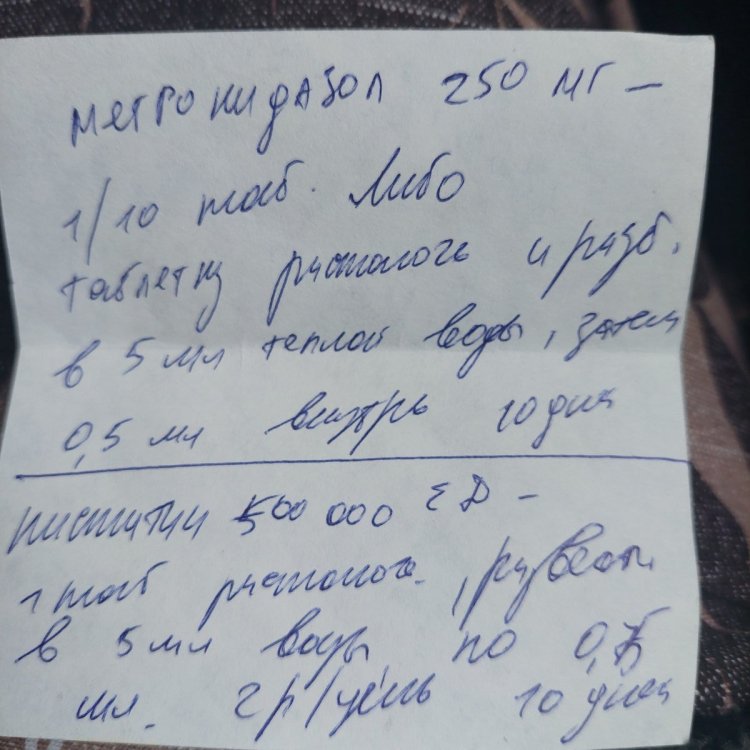 Метронидазол 250 мг –
1/10 таб. Либо
таблетку растолочь и разб.
в 5 мл теплой воды, затем
0,5 мл внутрь 10 дней
Нистатин 500 000 ЕД –
1 таб растолочь, развести
в 5 мл воды по
мл. 2 р/день 10 дней